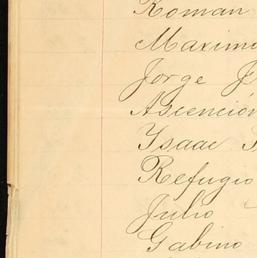 Roman
Maximo
Jorge J
Ascención
Isaac
Refugio
Julio
Gabino